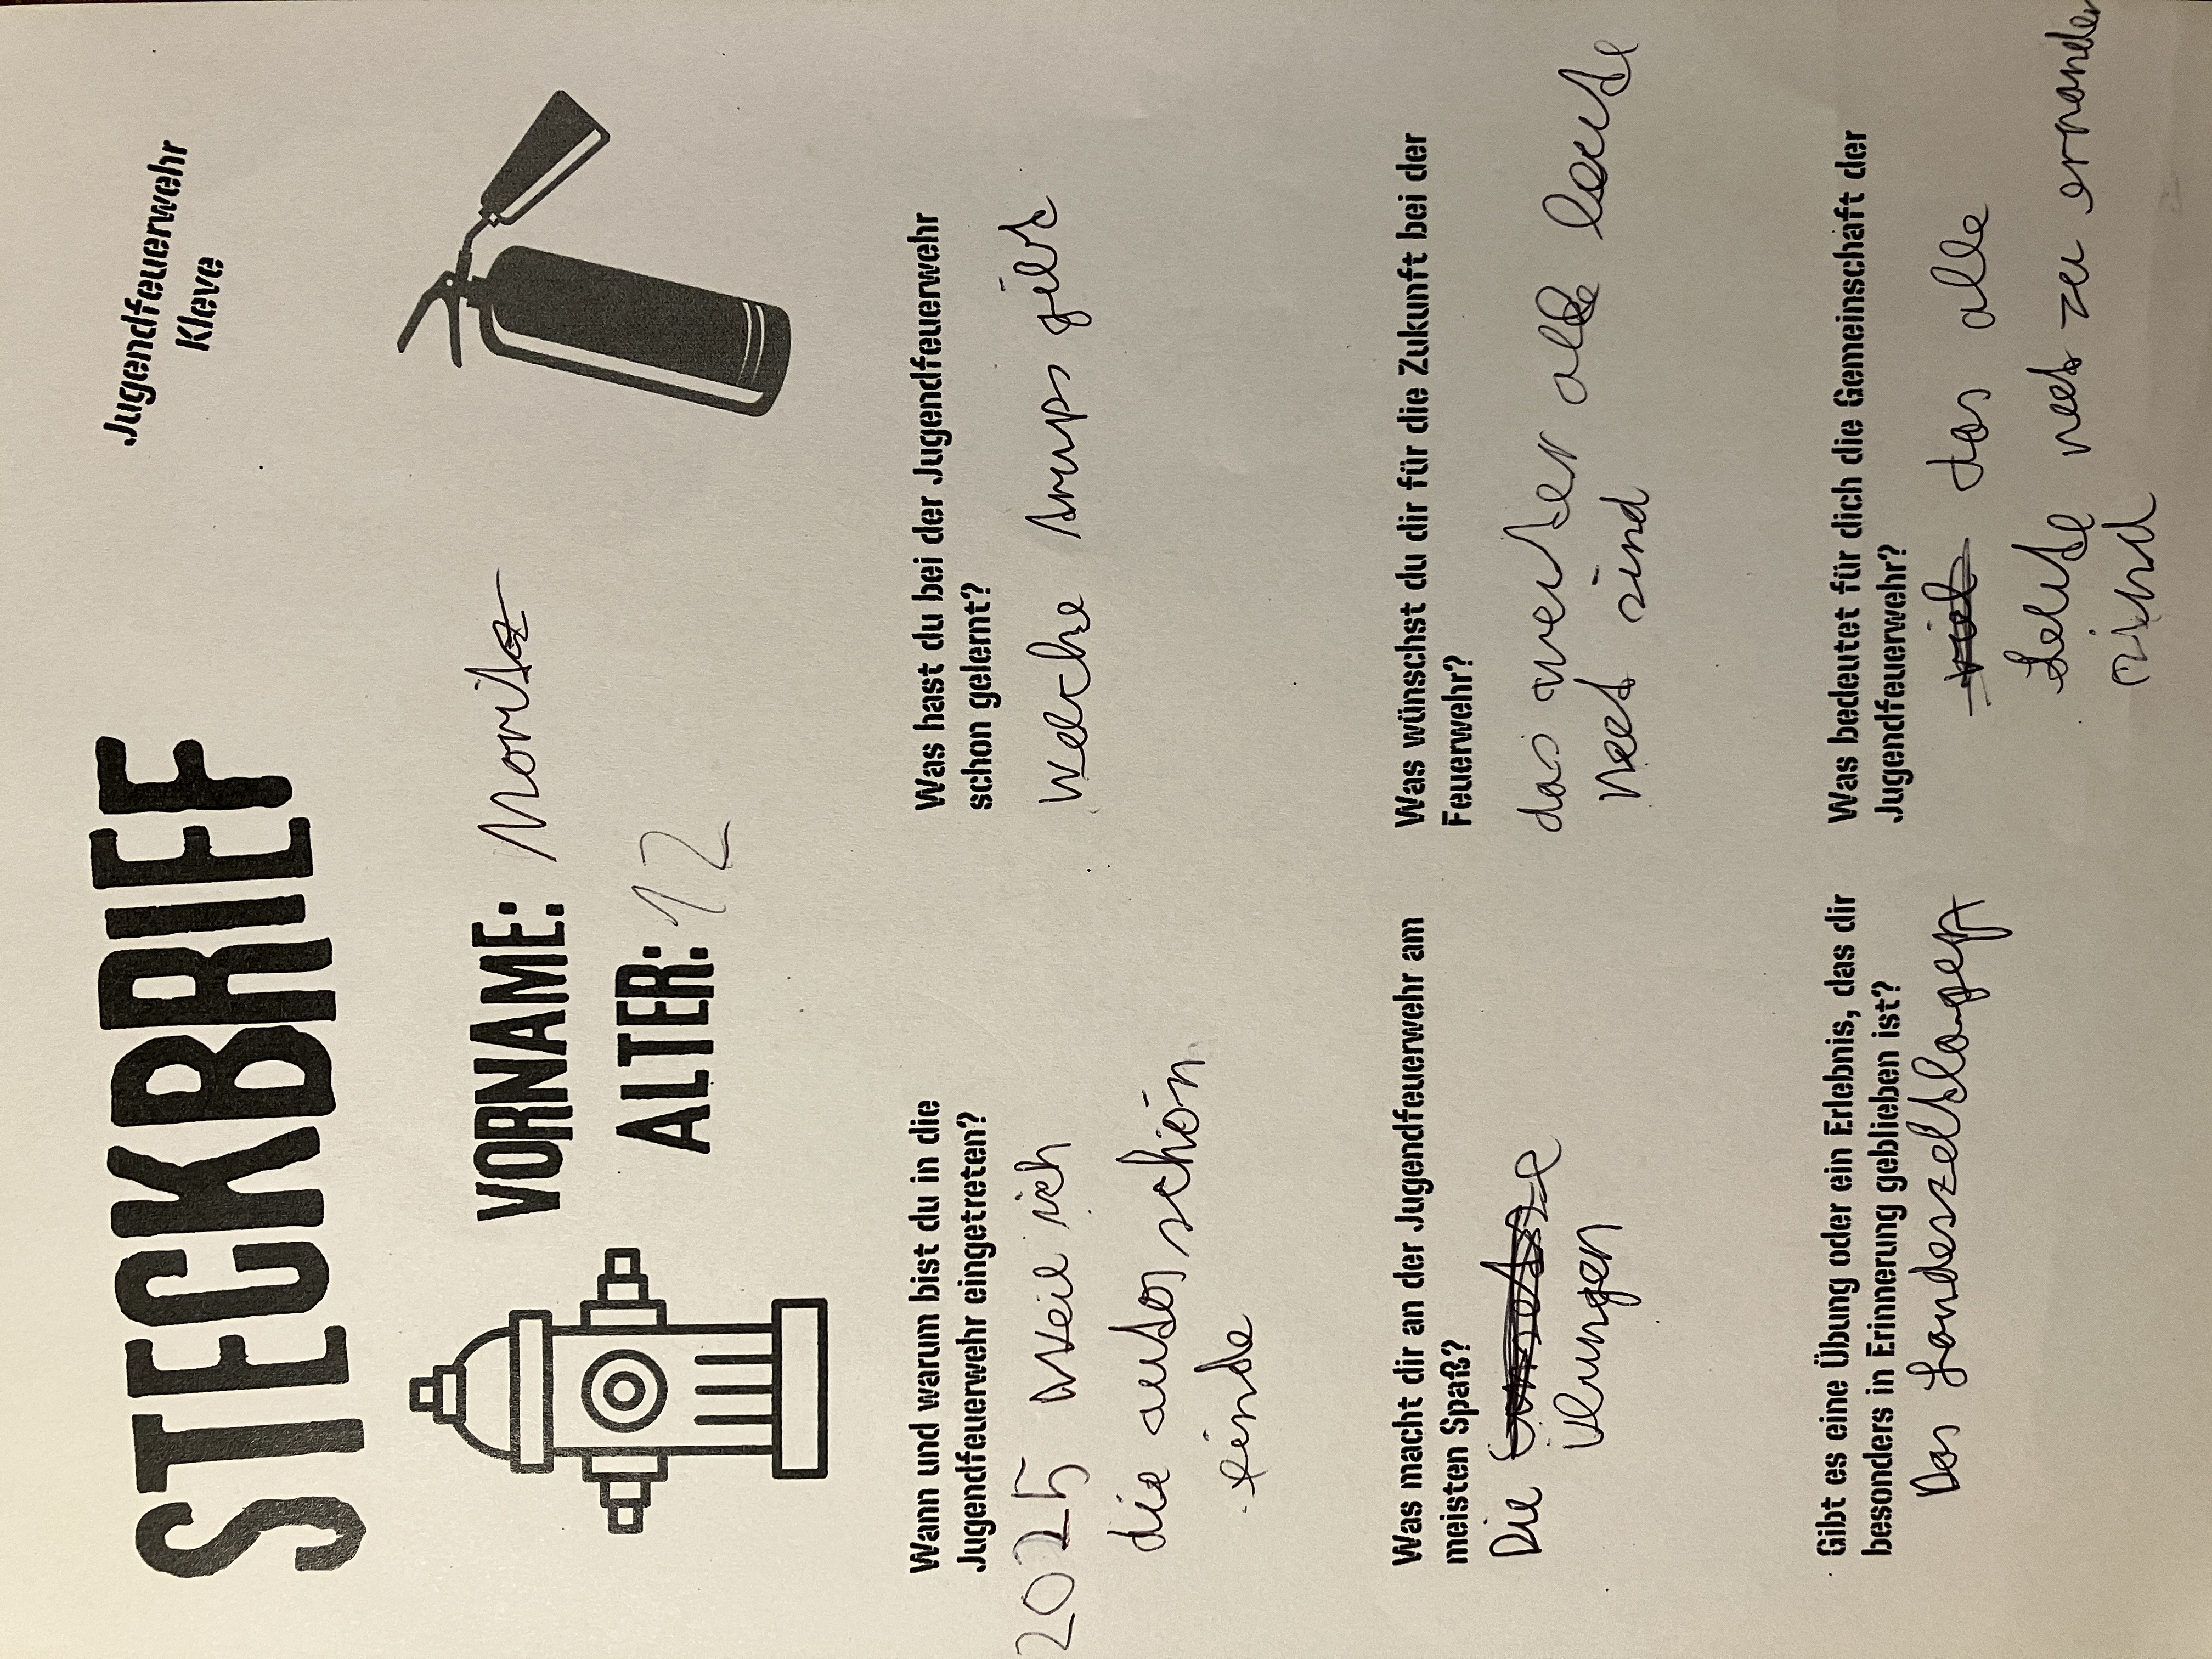 STECKBRIEF
Jugendfeuerwehr
Kleve
VORNAME: Moritz
ALTER: 12
Wann und warum bist du in die
Jugendfeuerwehr eingetreten?
2025 weil ich
die autos schön
finde
Was hast du bei der Jugendfeuerwehr
schon gelernt?
welche trups gibt
Was macht dir an der Jugendfeuerwehr am
meisten Spaß?
Die
übungen
Was wünschst du dir für die Zukunft bei der
Feuerwehr?
das weiter alle leute
nett sind
Gibt es eine Übung oder ein Erlebnis, das dir
besonders in Erinnerung geblieben ist?
Das Landeszeltlager
Was bedeutet für dich die Gemeinschaft der
Jugendfeuerwehr?
das alle
Leute nett zu einander
sind